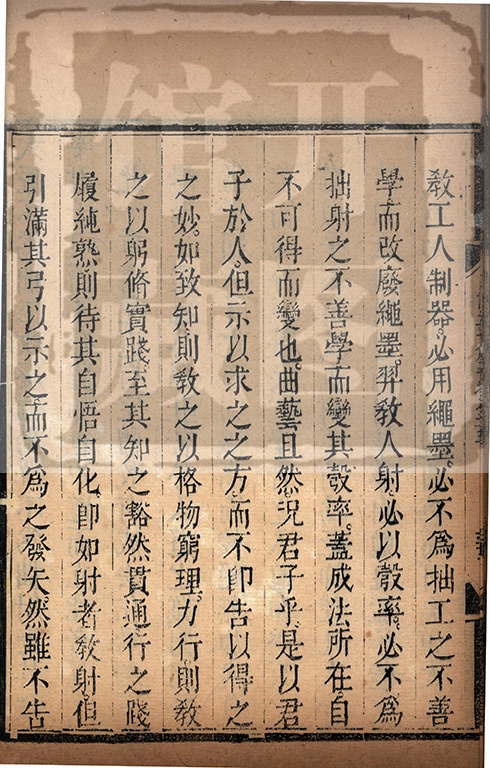 教工人制器。必用繩墨。必不為拙工之不善
學而改廢繩墨。羿教人射。必以彀率。必不為
拙射之不善學而變其彀率。蓋成法所在。自
不可得而變也。曲藝且然。況君子乎。是以君
子於人。但示以求之之方。而不即告以得之
之妙。如致知則教之以格物窮理。力行則教
之以躬脩實踐。至其知之豁然貫通。行之踐
履純熟。則待其自悟自化。即如射者教射。但
引滿其弓以示之。而不為之發矢。然雖不告